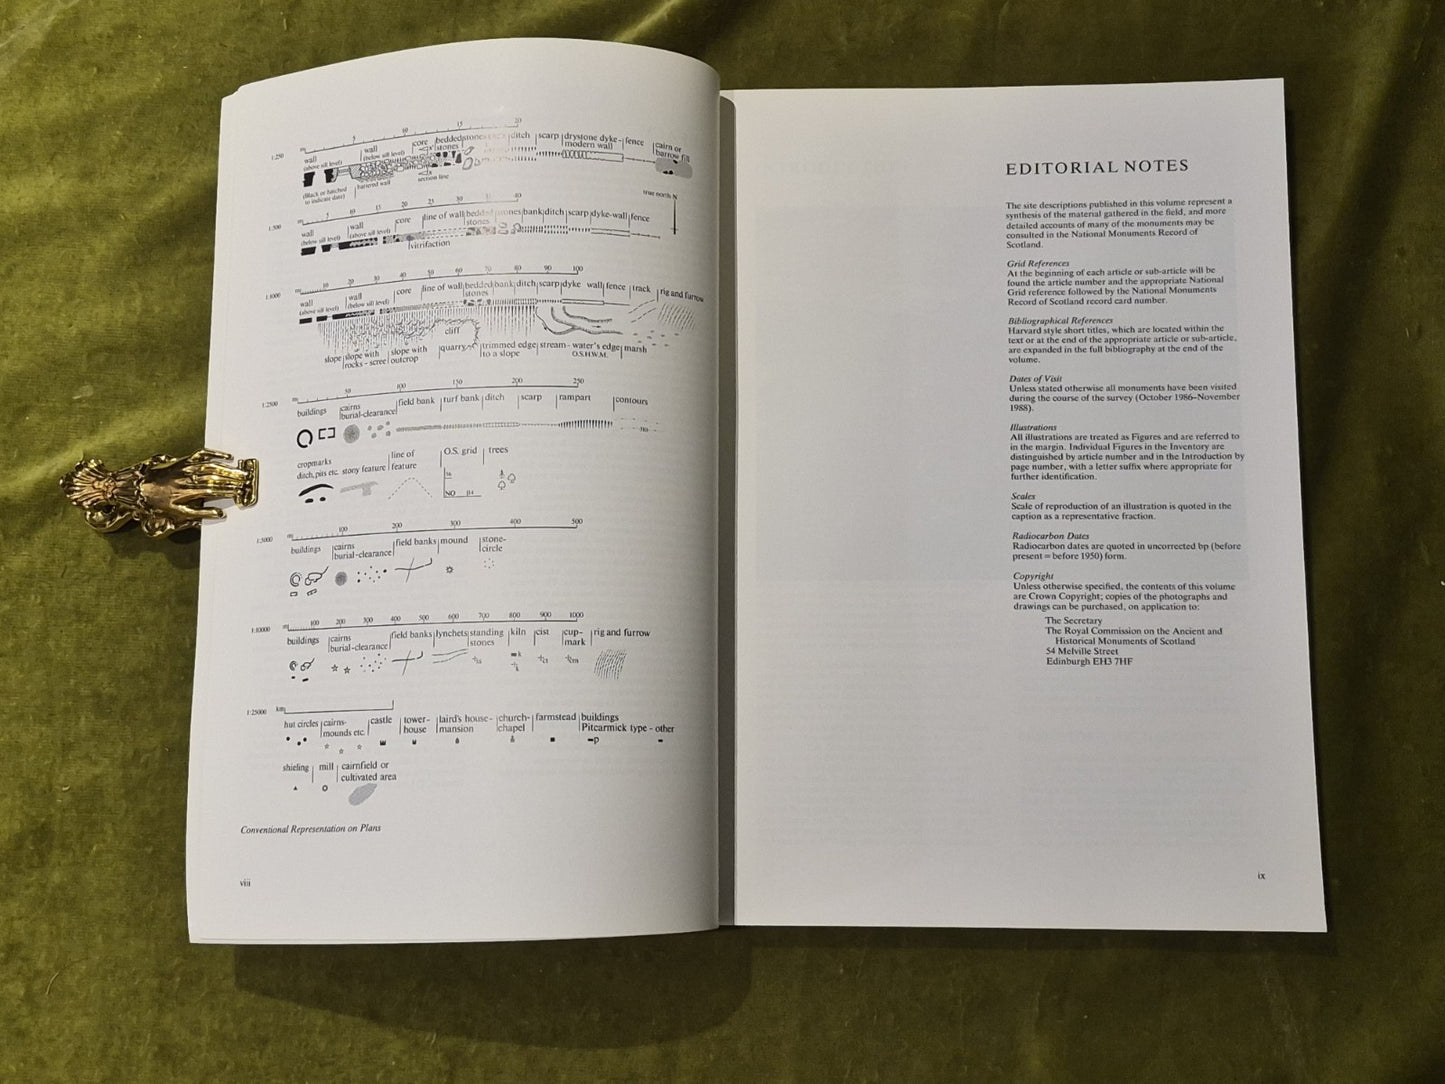 5 10 15 20
1:250
wall (above sill level)
wall (below sill level)
core
bedded stones
stones
ditch
scarp
drystone dyke - modern wall
fence
cairn or barrow fill
(Black or hatched to indicate date)
battered wall
section line
true north N
m 5 10 15 20 25 30 40
1:500
wall (below sill level)
wall (above sill level)
core
line of wall
bedded stones
stones
bank
ditch
scarp
dyke-wall
fence
vitrifaction
m 10 20 30 40 50 60 70 80 90 100
1:1000
wall (above sill level)
wall (below sill level)
core
line of wall
bedded stones
bank
ditch
scarp
dyke wall
fence
track
rig and furrow
cliff
slope
slope with rocks - scree
slope with outcrop
quarry
trimmed edge to a slope
stream - water's edge O.S.H.W.M.
marsh
m 50 100 150 200 250
1:2500
buildings
cairns burial-clearance
field bank
turf bank
ditch
scarp
rampart
contours
cropmarks ditch, pits etc.
stony feature
line of feature
O.S. grid
trees
NO
m 100 200 300 400 500
1:5000
buildings
cairns burial-clearance
field banks
mound
stone-circle
m 100 200 300 400 500 600 700 800 900 1000
1:10000
buildings
cairns burial-clearance
field banks
lynchets
standing stones
kiln
cist
cup-mark
rig and furrow
km
1:25000
hut circles
cairns-mounds etc.
castle
tower-house
laird's house-mansion
church-chapel
farmstead
buildings Pitcarmick type - other
shieling
mill
cairnfield or cultivated area
Conventional Representation on Plans
viii
EDITORIAL NOTES
The site descriptions published in this volume represent a
synthesis of the material gathered in the field, and more
detailed accounts of many of the monuments may be
consulted in the National Monuments Record of
Scotland.
Grid References
At the beginning of each article or sub-article will be
found the article number and the appropriate National
Grid reference followed by the National Monuments
Record of Scotland record card number.
Bibliographical References
Harvard style short titles, which are located within the
text or at the end of the appropriate article or sub-article,
are expanded in the full bibliography at the end of the
volume.
Dates of Visit
Unless stated otherwise all monuments have been visited
during the course of the survey (October 1986–November
1988).
Illustrations
All illustrations are treated as Figures and are referred to
in the margin. Individual Figures in the Inventory are
distinguished by article number and in the Introduction by
page number, with a letter suffix where appropriate for
further identification.
Scales
Scale of reproduction of an illustration is quoted in the
caption as a representative fraction.
Radiocarbon Dates
Radiocarbon dates are quoted in uncorrected bp (before
present = before 1950) form.
Copyright
Unless otherwise specified, the contents of this volume
are Crown Copyright; copies of the photographs and
drawings can be purchased, on application to:
The Secretary
The Royal Commission on the Ancient and
Historical Monuments of Scotland
54 Melville Street
Edinburgh EH3 7HF
ix